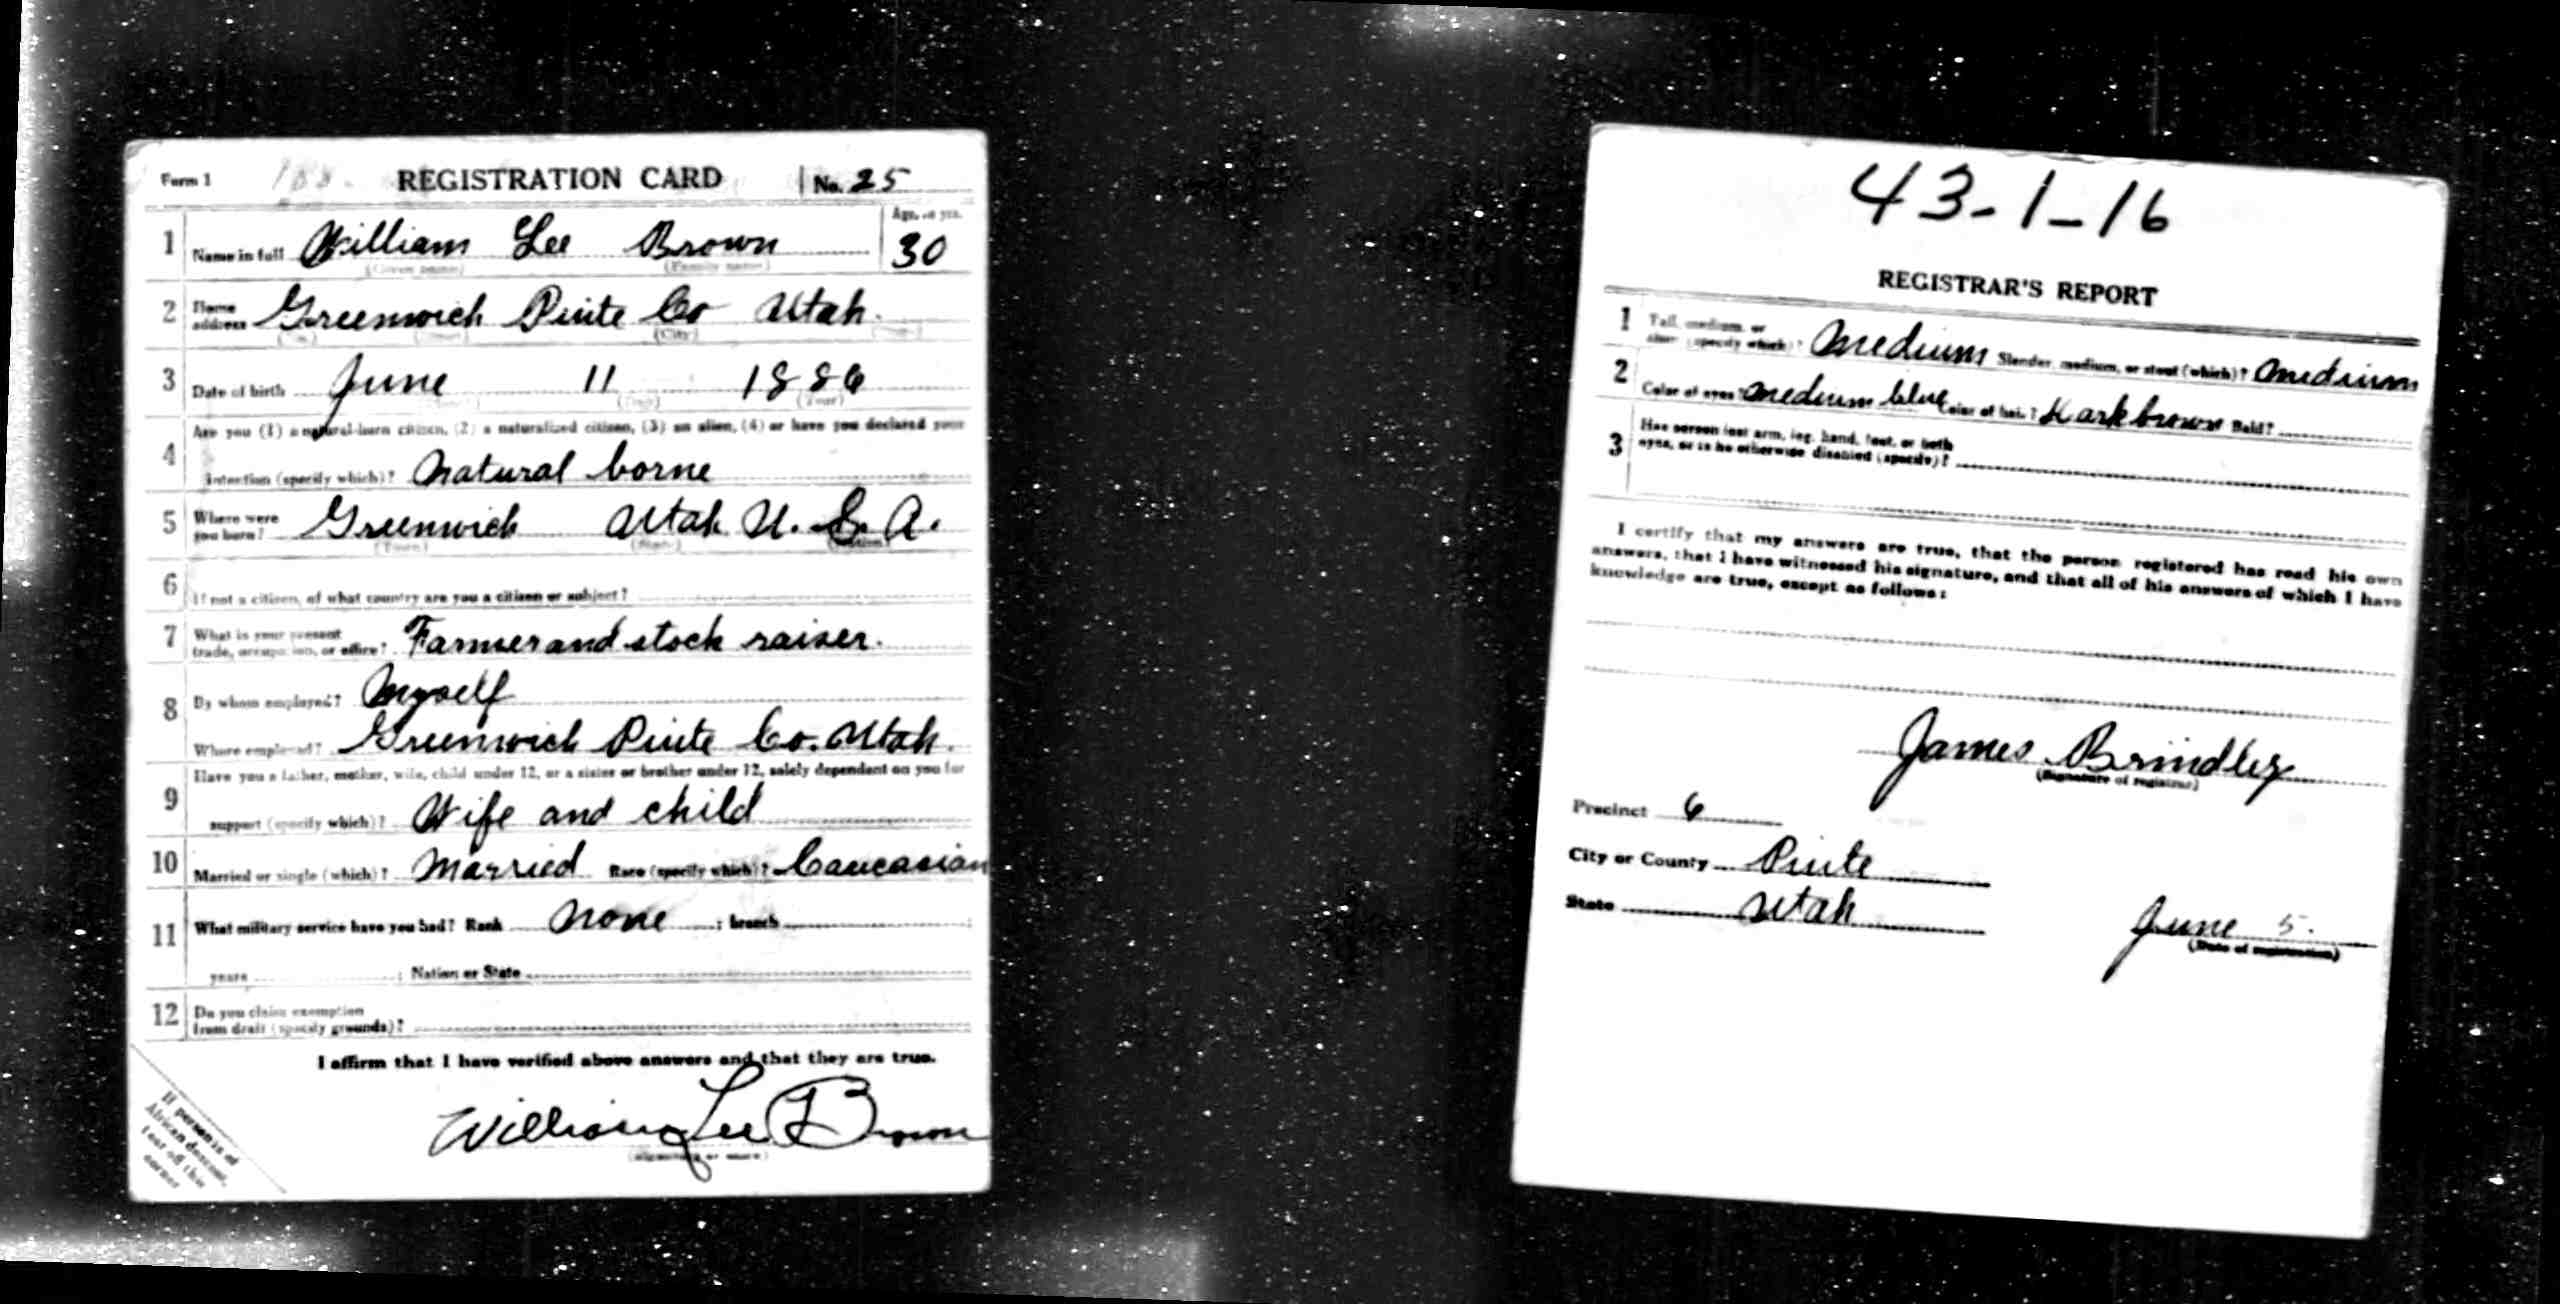 Form 1 REGISTRATION CARD No. 25
1 Name in full William Lee Brown Age, in yrs. 30
(Given name) (Family name)
2 Home address Greenwich Piute Co Utah.
(No.) (Street) (City) (State)
3 Date of birth June 11 1886
(Month) (Day) (Year)
4 Are you (1) a natural-born citizen, (2) a naturalized citizen, (3) an alien, (4) or have you declared your
intention (specify which)? Natural borne
5 Where were you born? Greenwich Utah U. S. A.
(Town) (State) (Nation)
6 If not a citizen, of what country are you a citizen or subject?
7 What is your present
trade, occupation, or office? Farmer and stock raiser.
8 By whom employed? Myself
Where employed? Greenwich Piute Co. Utah.
9 Have you a father, mother, wife, child under 12, or a sister or brother under 12, solely dependent on you for
support (specify which)? Wife and child
10 Married or single (which)? Married Race (specify which)? Caucasian
11 What military service have you had? Rank None ; branch ;
years ; Nation or State
12 Do you claim exemption
from draft (specify grounds)?
I affirm that I have verified above answers and that they are true.
William Lee Brown
(Signature or mark)
If person is of
African descent,
tear off this
corner
43-1-16
REGISTRAR'S REPORT
1 Tall, medium, or
short (specify which)? Medium Slender, medium, or stout (which)? Medium
2 Color of eyes? Medium blue Color of hair? Dark brown Bald?
3 Has person lost arm, leg, hand, foot, or both
eyes, or is he otherwise disabled (specify)?
I certify that my answers are true, that the person registered has read his own
answers, that I have witnessed his signature, and that all of his answers of which I have
knowledge are true, except as follows:
James Brindley
(Signature of registrar)
Precinct 6
City or County Piute
State Utah
June 5.
(Date of registration)